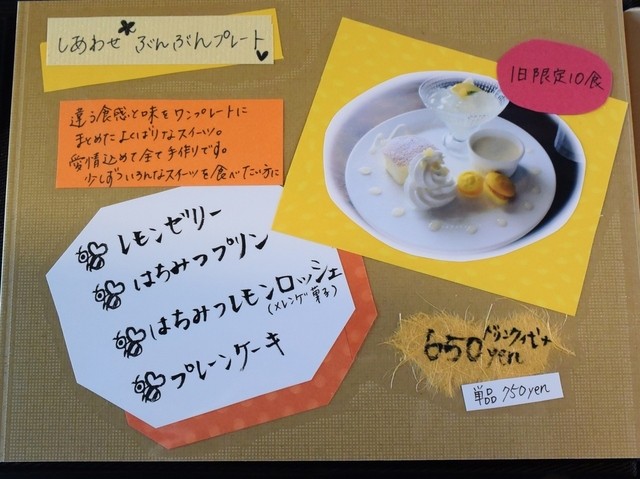 しあわせ ぶんぶんプレート
1日限定10食
違う食感と味をワンプレートに
まとめたよくばりなスイーツ。
愛情込めて全て手作りです。
少しずついろんなスイーツを食べたい方に
レモンゼリー
はちみつプリン
はちみつレモンロッシェ
(メレンゲ菓子)
プレーンケーキ
650yen
単品 750yen